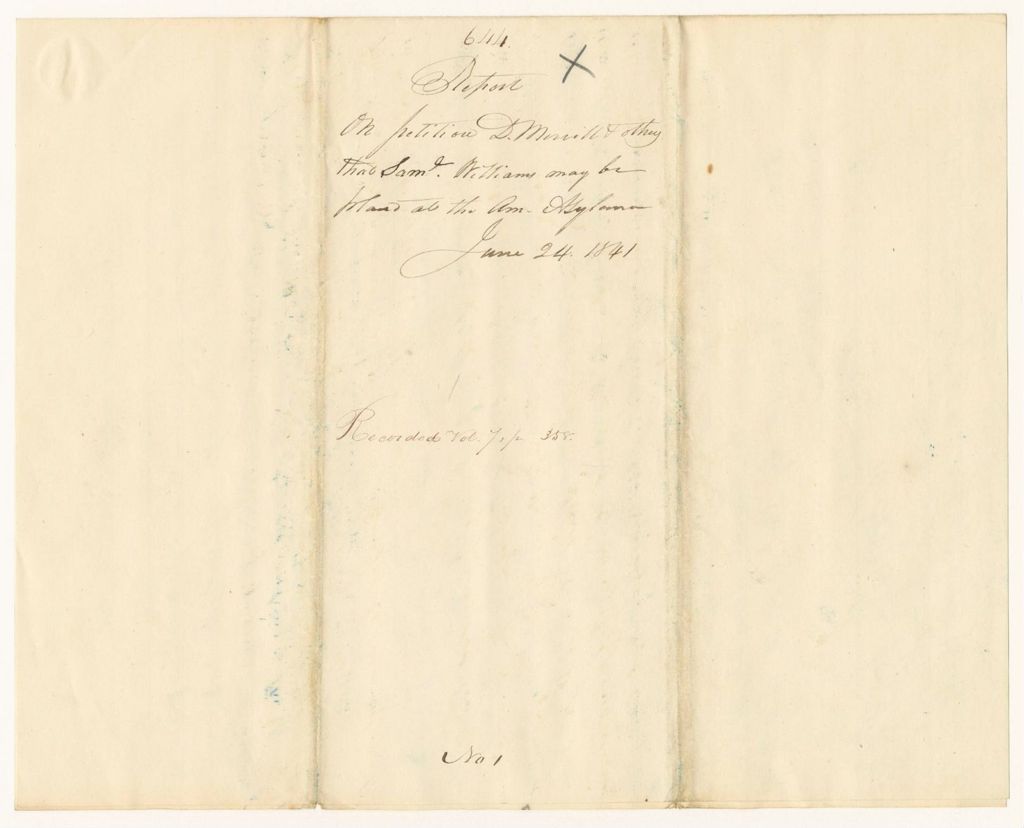 644.
Report
On petition D. Merrill & others
that Saml. Williams may be
placed at the Am. Asylum
June 24. 1841
Recorded Vol. 7, p 358.
No 1